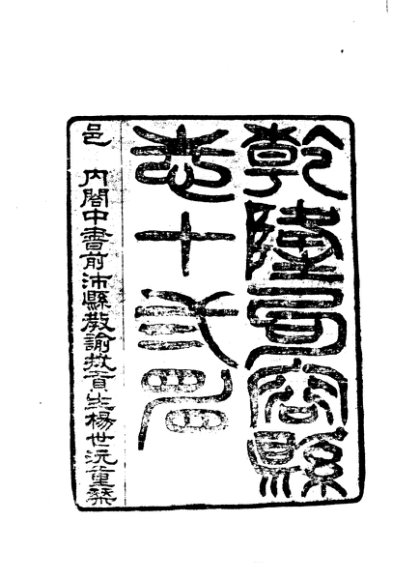 乾隆句容縣
志十卷
邑 内閣中書前沛縣教諭拔貢生楊世沅重栞